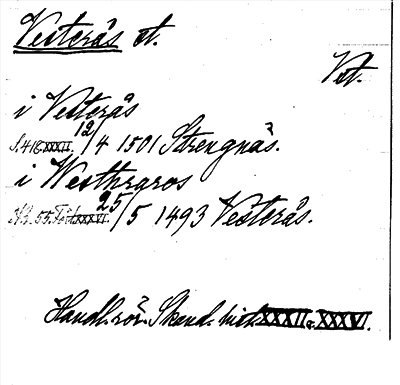 Vesterås st.
Vst.
i Vesterås
S. 418 XXXII. 12/4 1501 Strengnäs.
i Westhraros
N:o 55. XXXVI. 25/5 1493 Vesterås.
Handl. rör. Skand. hist. XXXII o. XXXVI.